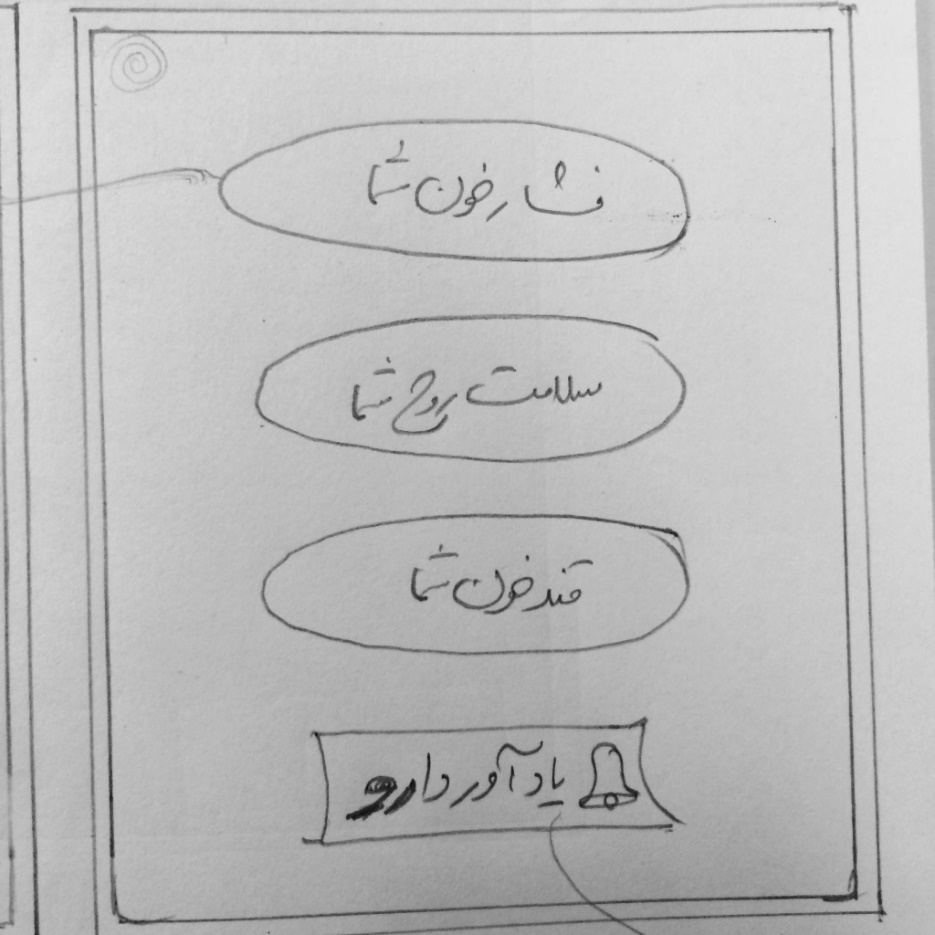 فشار خون شما
سلامت روح شما
قند خون شما
یادآور دارو